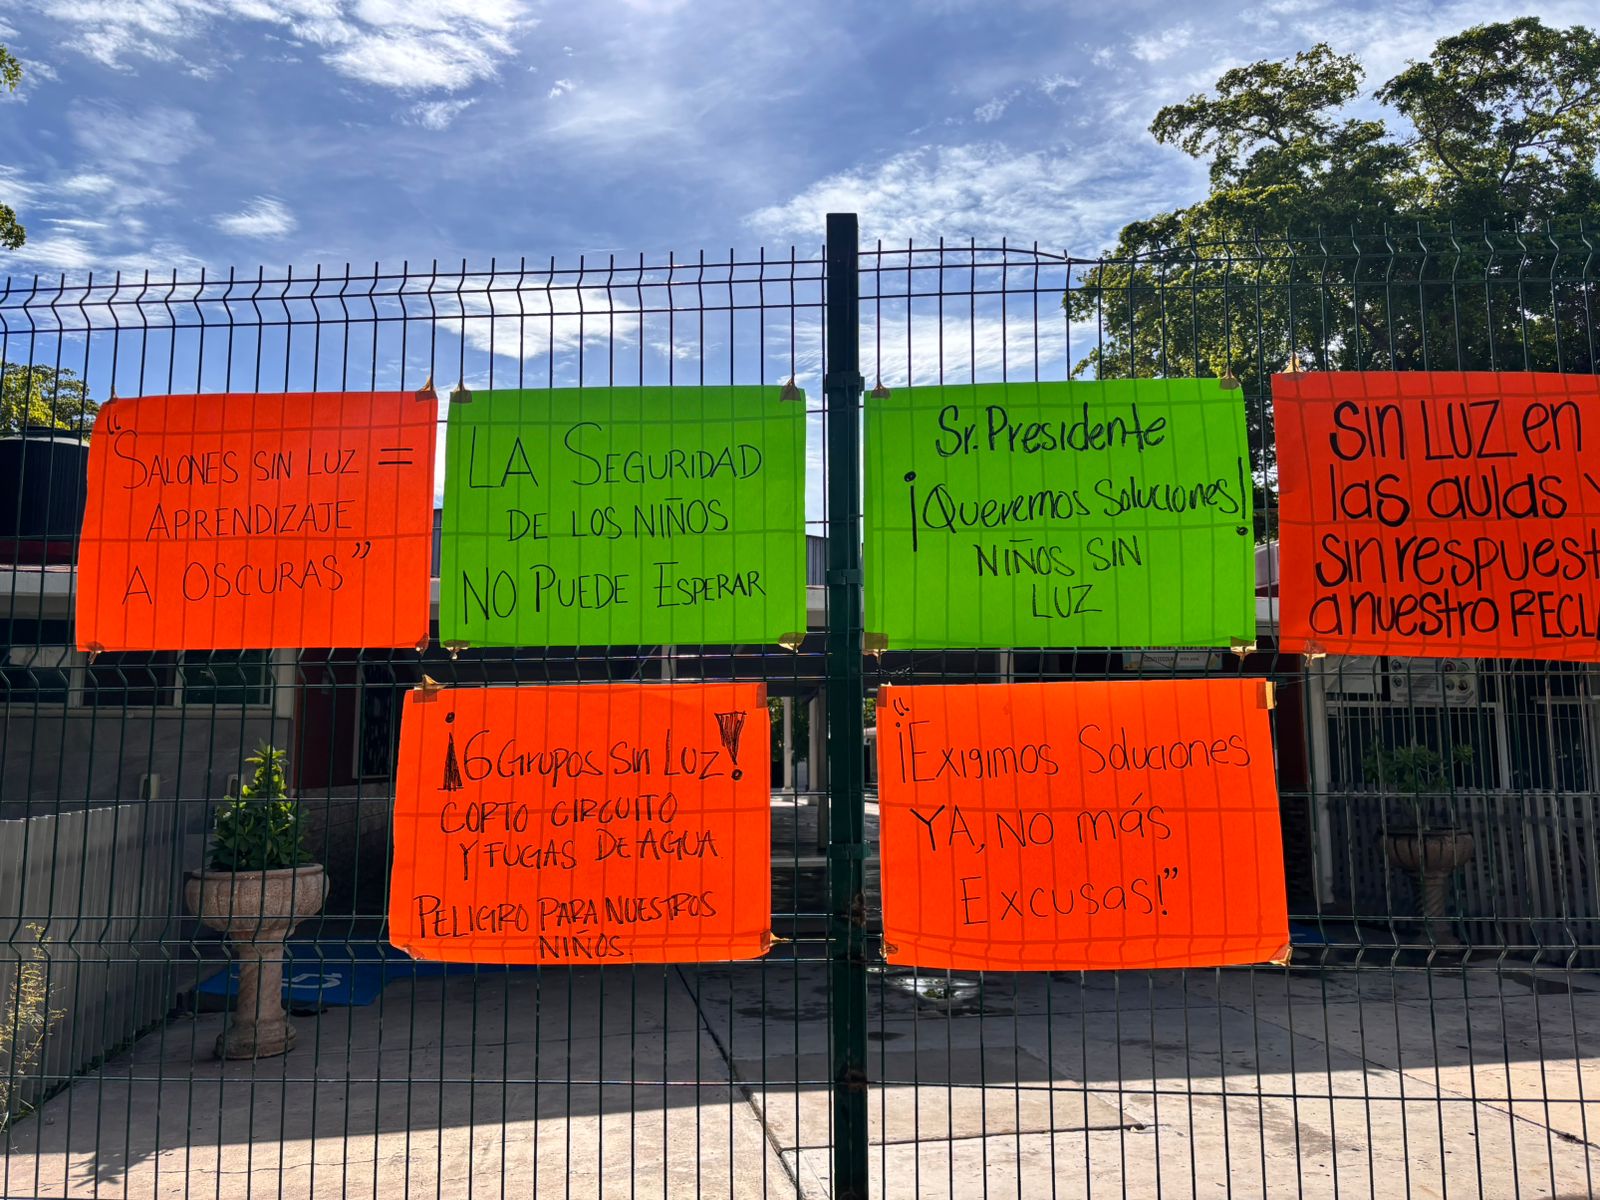 "SALONES SIN LUZ =
APRENDIZAJE
A OSCURAS"
LA SEGURIDAD
DE LOS NIÑOS
NO PUEDE ESPERAR
Sr. Presidente
¡Queremos Soluciones!
NIÑOS SIN
LUZ
SIN LUZ en
las aulas
sin respuest
a nuestro RECL
¡6 Grupos Sin Luz!
CORTO CIRCUITO
Y FUGAS DE AGUA.
PELIGRO PARA NUESTROS
NIÑOS.
"¡Exigimos Soluciones
YA, NO más
Excusas!"